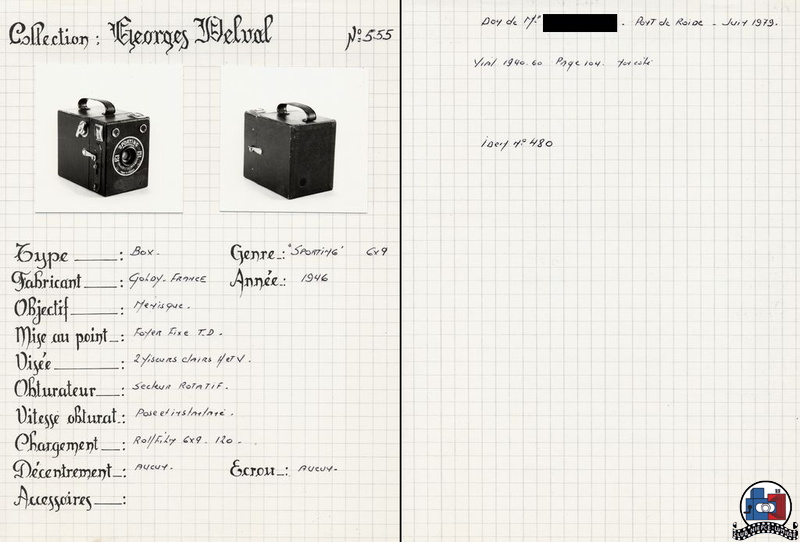 Collection : Georges Delval Nº 555
Type : Box. Genre : "Sporting" 6x9
Fabricant : Goldy. France Année : 1946
Objectif : Ménisque.
Mise au point : Foyer Fixe T.D.
Visée : 2 viseurs clairs H et V.
Obturateur : Secteur Rotatif.
Vitesse obturat. : Pose et instantané.
Chargement : Rollfilm 6x9. 120.
Décentrement : Aucun. Ecrou : Aucun.
Accessoires :
Don de Mr. - Pont de Roide - Juin 1979.
Vial 1940.60 Page 104.
idem nº 480